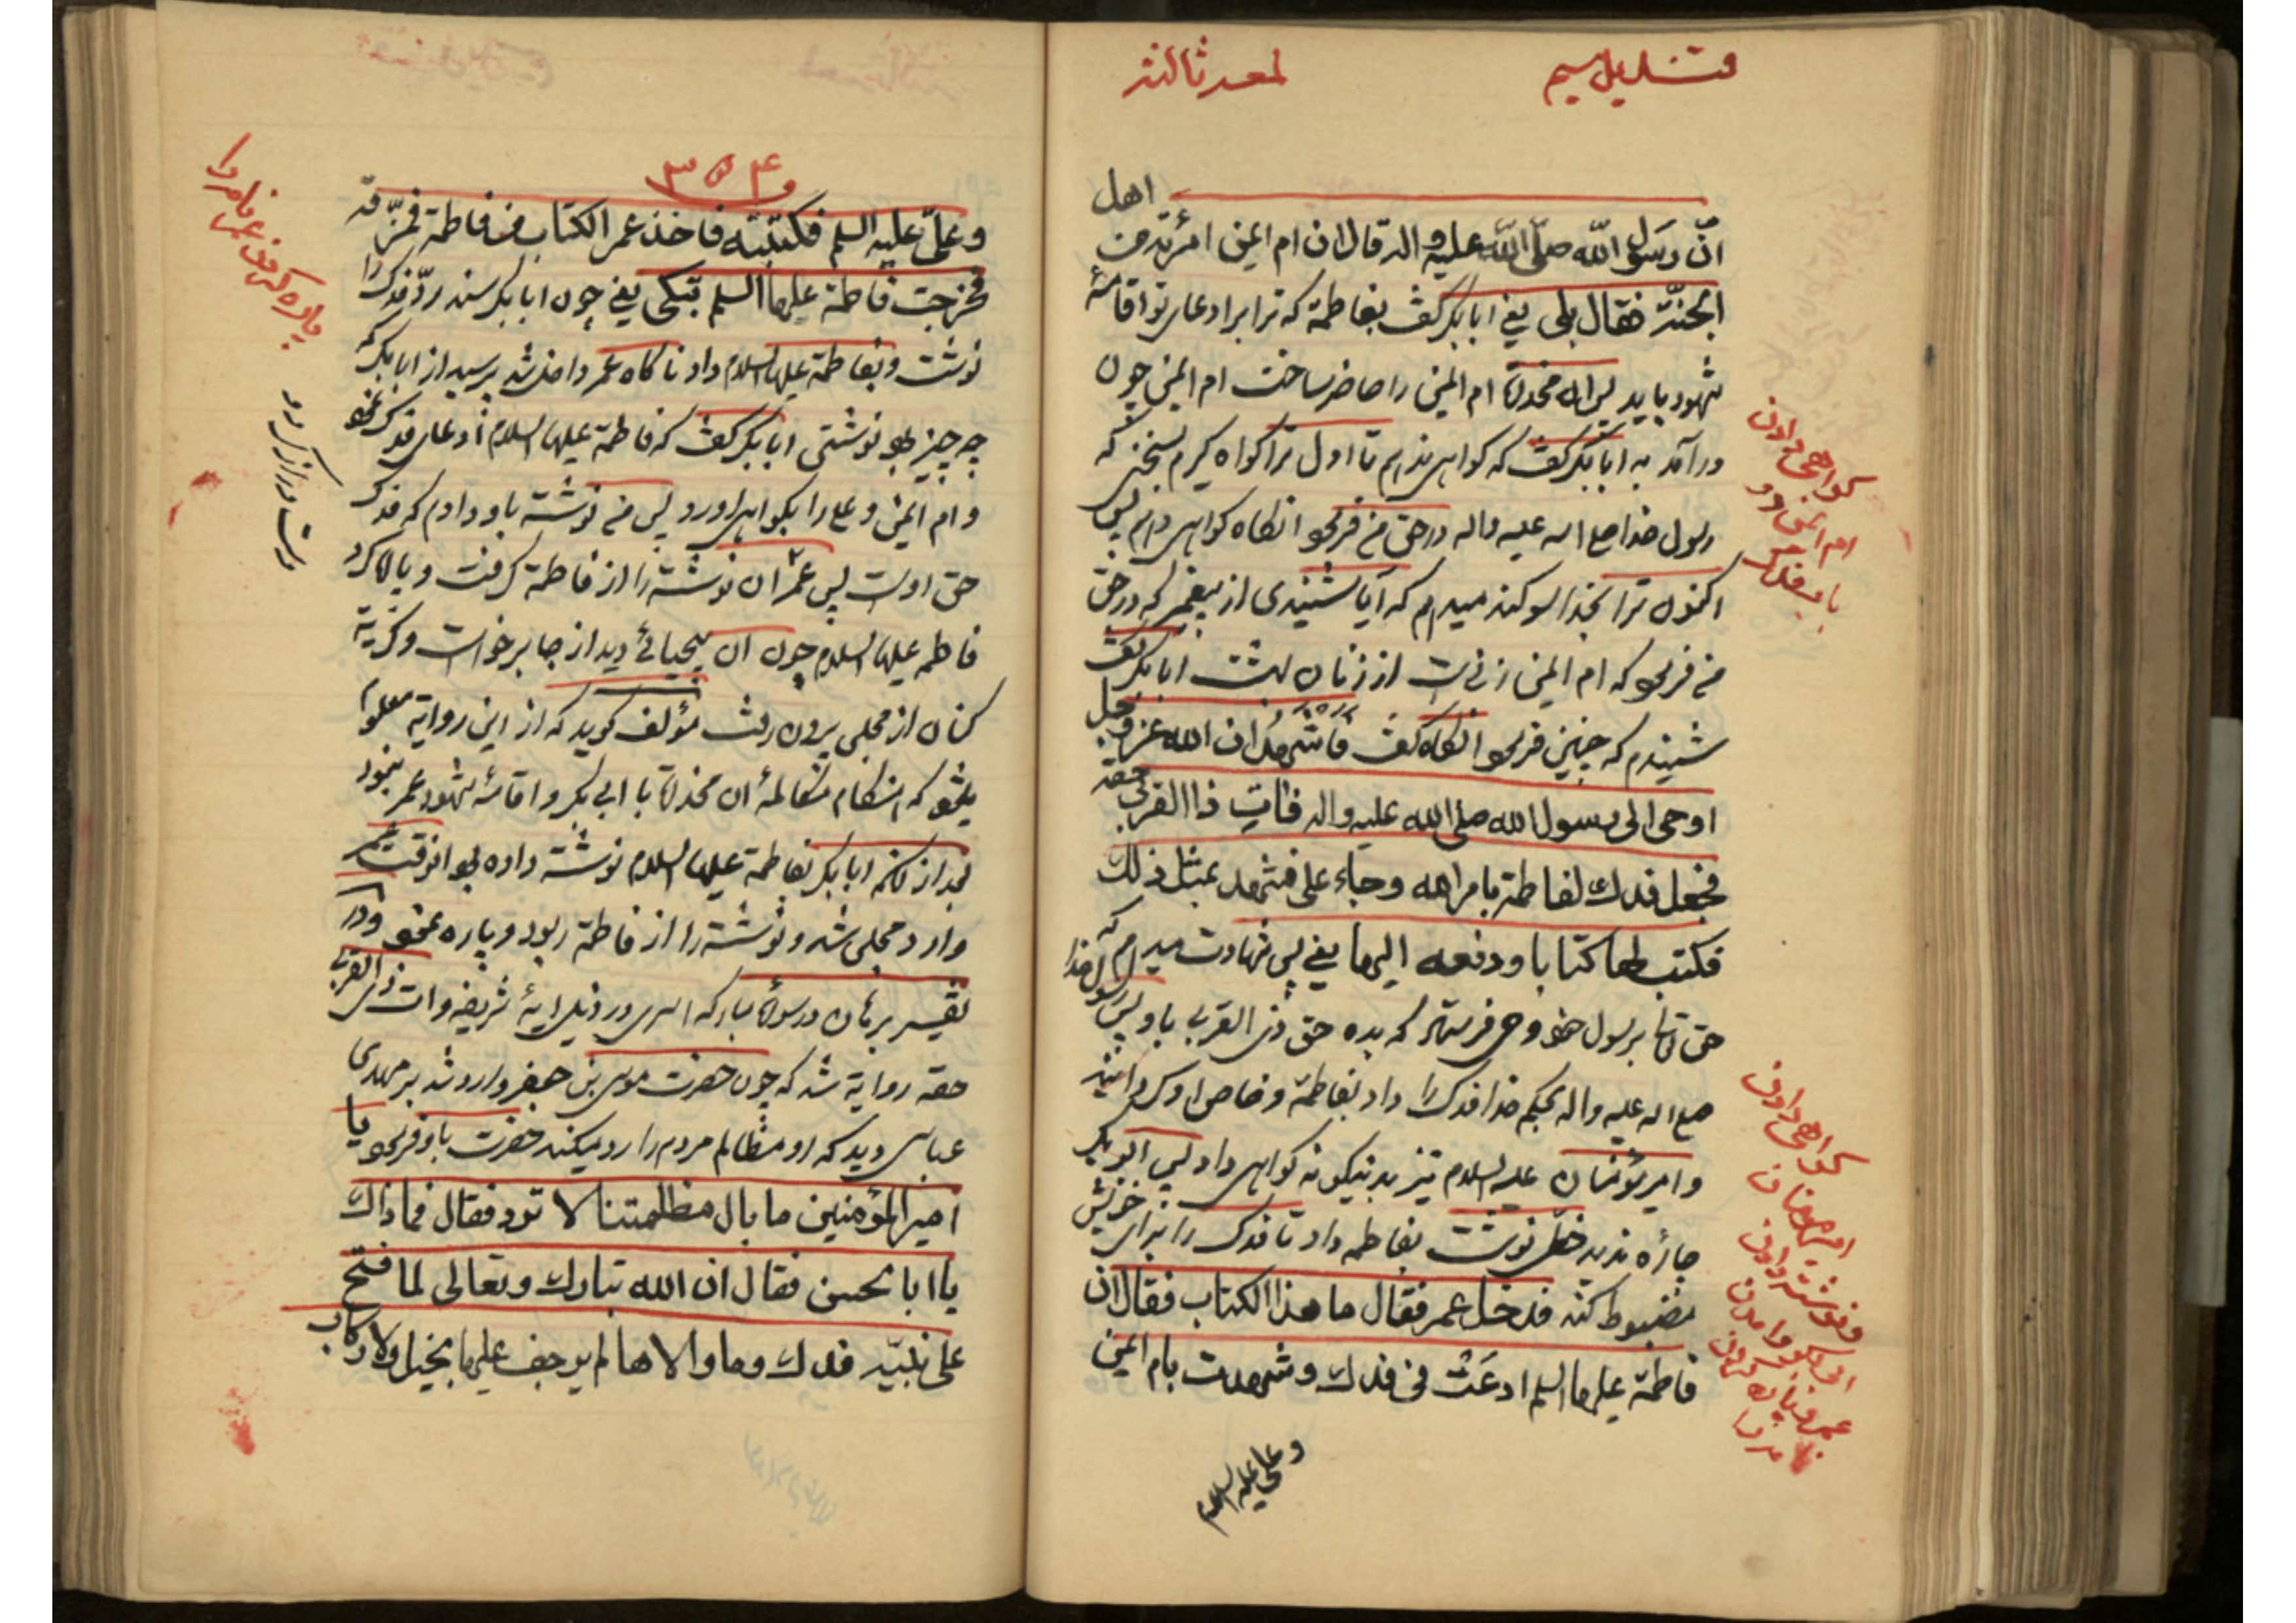 لمعه ثالثه
اهل
انّ رَسول الله صلّی الله علیه و اله قال ان ام ایمن امرئة من
الجنّة فقال بلی یعنی ابابکر گفت بفاطمة که ترا برادعای تو اقامهٔ
شهود باید پس ان مخدرة ام ایمن را حاضر ساخت ام ایمن چون
درآمد به ابابکر گفت که گواهی ندهم تا اول ترا گواه گیرم بسخنی که
رسول خدا صلع اله علیه واله در حق من فرمود انگاه گواهی دهم پس
اکنون ترا بخدا سوگند میدهم که آیا شنیدی از پیغمبر که در حق
من فرمود که ام ایمن زنی است از زنان بهشت ابابکر گفت
شنیدم که چنین فرمود انگاه گفت فاشهدُ ان الله عز و جل
اوحی الی رسول الله صلی الله علیه واله فات ذا القربی حقه
فجعل فدك لفاطمة بامر الله وجاء علی فشهد بمثل ذلك
فکتب لها کتابا ودفعه الیها یعنی پس شهادت میدهم که
حق تعالی برسول خود وحی فرستاد که بده حق ذی القربی باو پس رسول خدا
صلع اله علیه واله بحکم خدا فدک را داد بفاطمة و خاص او
وامیرمؤمنان علیه السلام نیز بدینگونه گواهی داد پس ابوبکر
چاره ندید خطی نوشت بفاطمه داد تا فدک را برای خویش
مضبوط کند فدخل عمر فقال ما هذا الکتاب فقال ان
فاطمة علیها السلم ادعَت فی فدك وشهدت بام ایمن
وعلی علیه السلام
گواهی دادن
ام ایمن در
باب فدک
گواهی دادن
امیر مومنان
و نوشته دادن
ابی بکر و امدن
عمر و پاره کردن
۳۵۴
وعلیّ علیه السلم فکتبته فاخذ عمر الکتاب من فاطمة فمزّقه
فخرجت فاطمة علیها السلم تبکی یعنی چون ابابکر سند ردّ فدک را
نوشت وبفاطمة علیها السلام داد ناگاه عمر داخل شد پرسید از ابابکر که
چه چیز بود نوشتی ابابکر گفت که فاطمة علیها السلام ادعای فدک نمود
وام ایمن و علی را بگواهی اورد پس من نوشته باو دادم که فدک
حق اوست پس عمر ان نوشته را از فاطمة گرفت و پاره کرد
فاطمه علیها السلام چون ان بیحیائی دید از جا برخواست و گریه
کنان از مجلس بیرون رفت مؤلف گوید که از این روایة معلوم
میشود که هنگام مکالمهٔ ان مخدرة با ابی بکر و اقامهٔ شهود عمر نبود
بعد از انکه ابابکر بفاطمة علیها السلام نوشته داده بود انوقت عمر
وارد مجلس شد و نوشته را از فاطمة ربود و پاره نمود و در
تفسیر برهان در سورهٔ مبارکه اسری در ذیل ایهٔ شریفه وات ذی القربی
حقه روایة شد که چون حضرت موسی بن جعفر وارد شد بر مهدی
عباسی دید که او مظالم مردم را رد میکند حضرت باو فرمود یا
امیر المؤمنین ما بال مظلمتنا لا تود فقال فما ذاك
یا ابا الحسن فقال ان الله تبارك وتعالی لما فتح
علی نبیّه فدك وما والاها لم یوجف علیها بخیل ولا رکاب